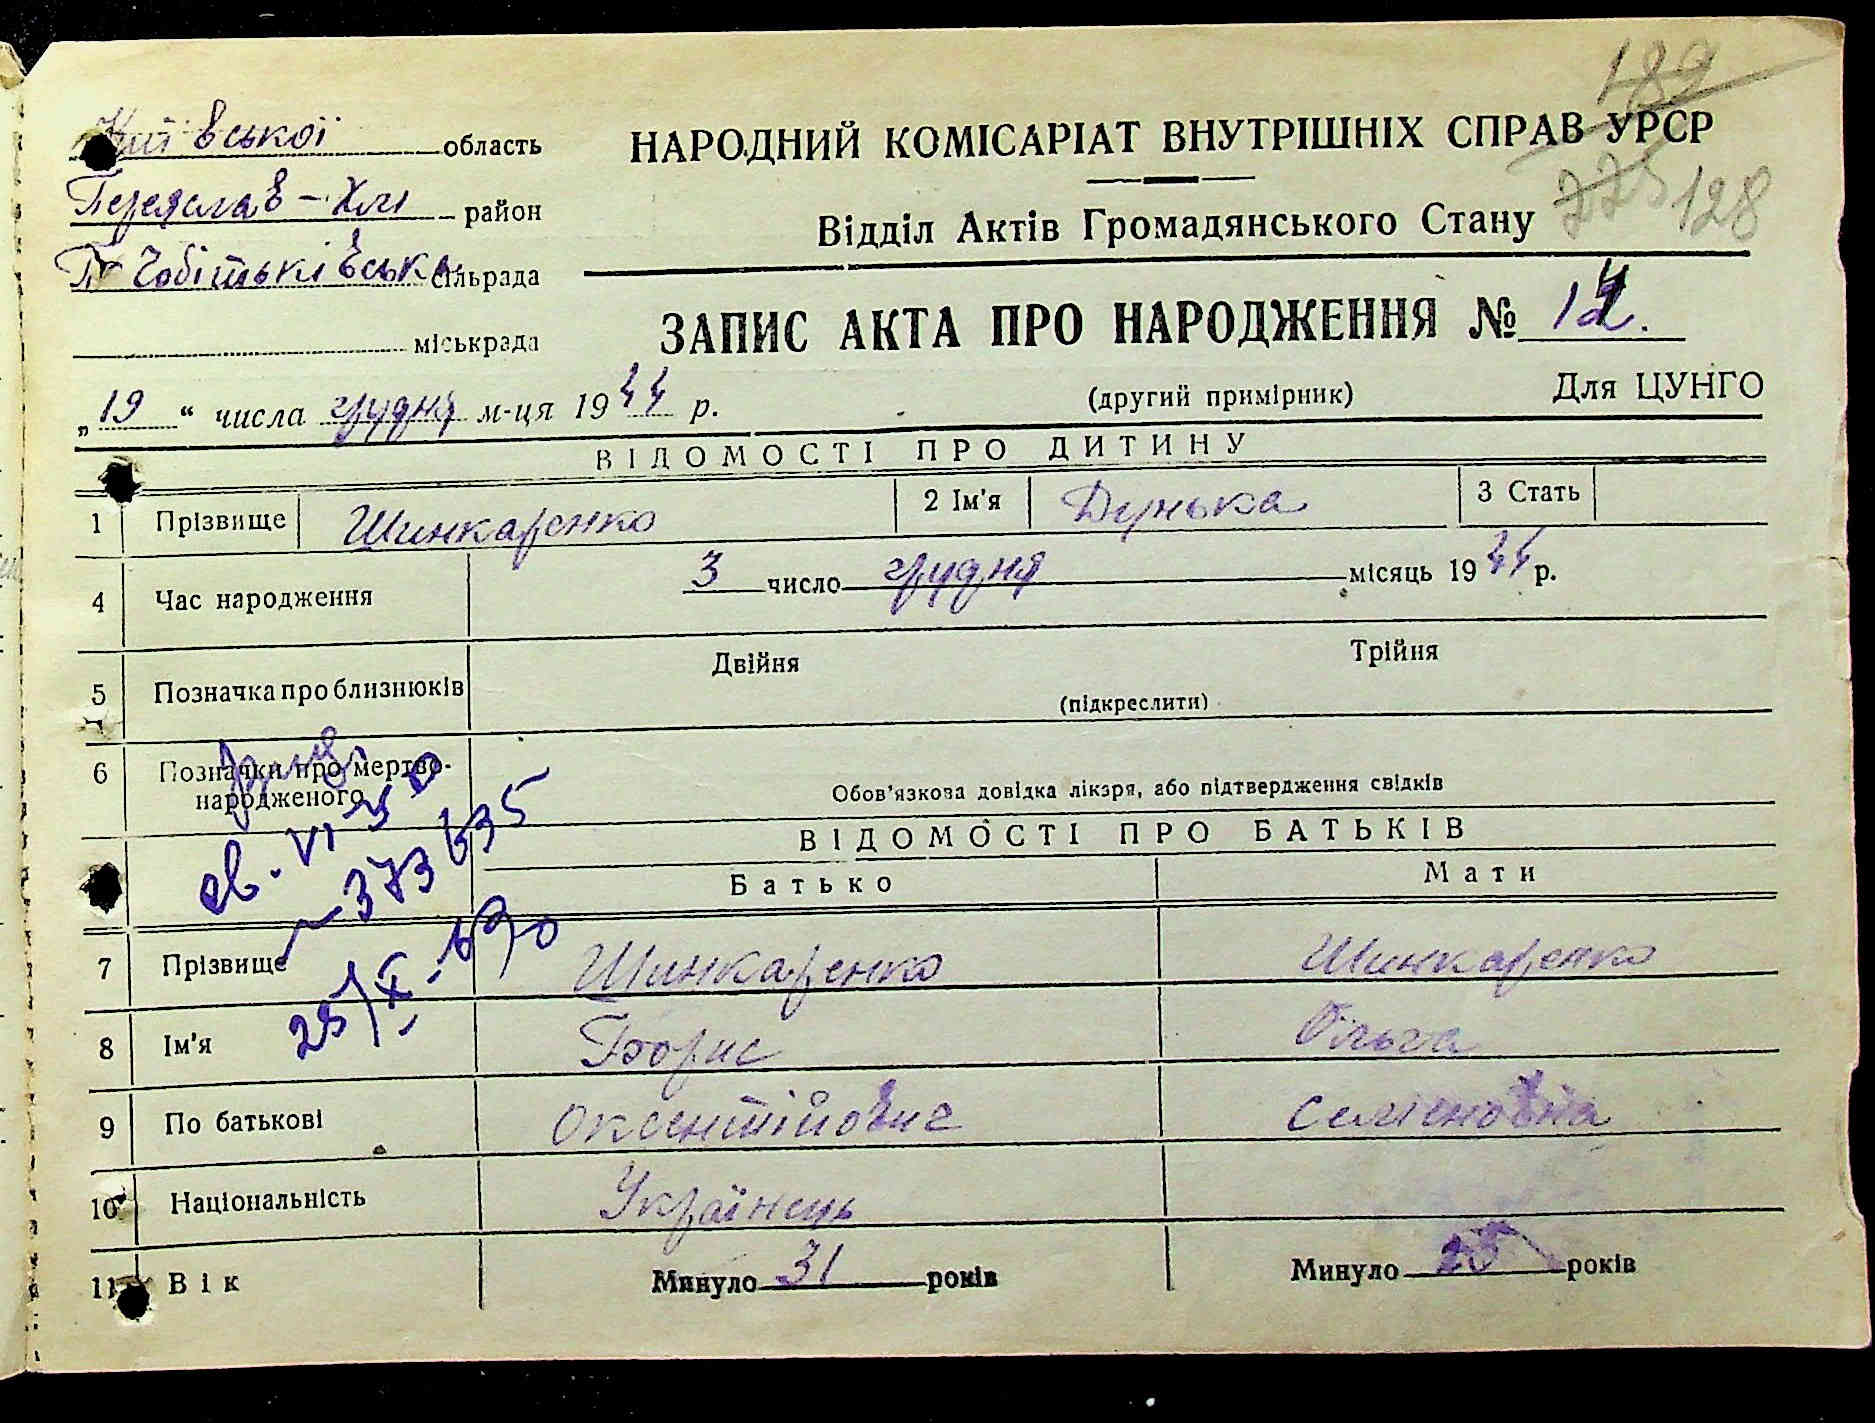 189
Київської область
НАРОДНИЙ КОМІСАРІАТ ВНУТРІШНІХ СПРАВ УРСР
Переяслав-Хм район
225 128
Відділ Актів Громадянського Стану
сільрада
ЗАПИС АКТА ПРО НАРОДЖЕННЯ №
міськрада
„19“ числа грудня м-ця 1944 р.
(другий примірник)
Для ЦУНГО
ВІДОМОСТІ ПРО ДИТИНУ
1 Прізвище Шинкаренко 2 Ім'я Дунька 3 Стать
4 Час народження 3 число грудня місяць 1944 р.
5 Позначка про близнюків Двійня Трійня
(підкреслити)
6 Позначки про мертво-
народженого
Обов'язкова довідка лікаря, або підтвердження свідків
ВІДОМОСТІ ПРО БАТЬКІВ
Батько Мати
7 Прізвище Шинкаренко Шинкаренко
8 Ім'я Борис Ольга
9 По батькові Оксентійовис Семеновна
10 Національність Українець
11 Вік Минуло 31 років Минуло 25 років
св. VI
373635